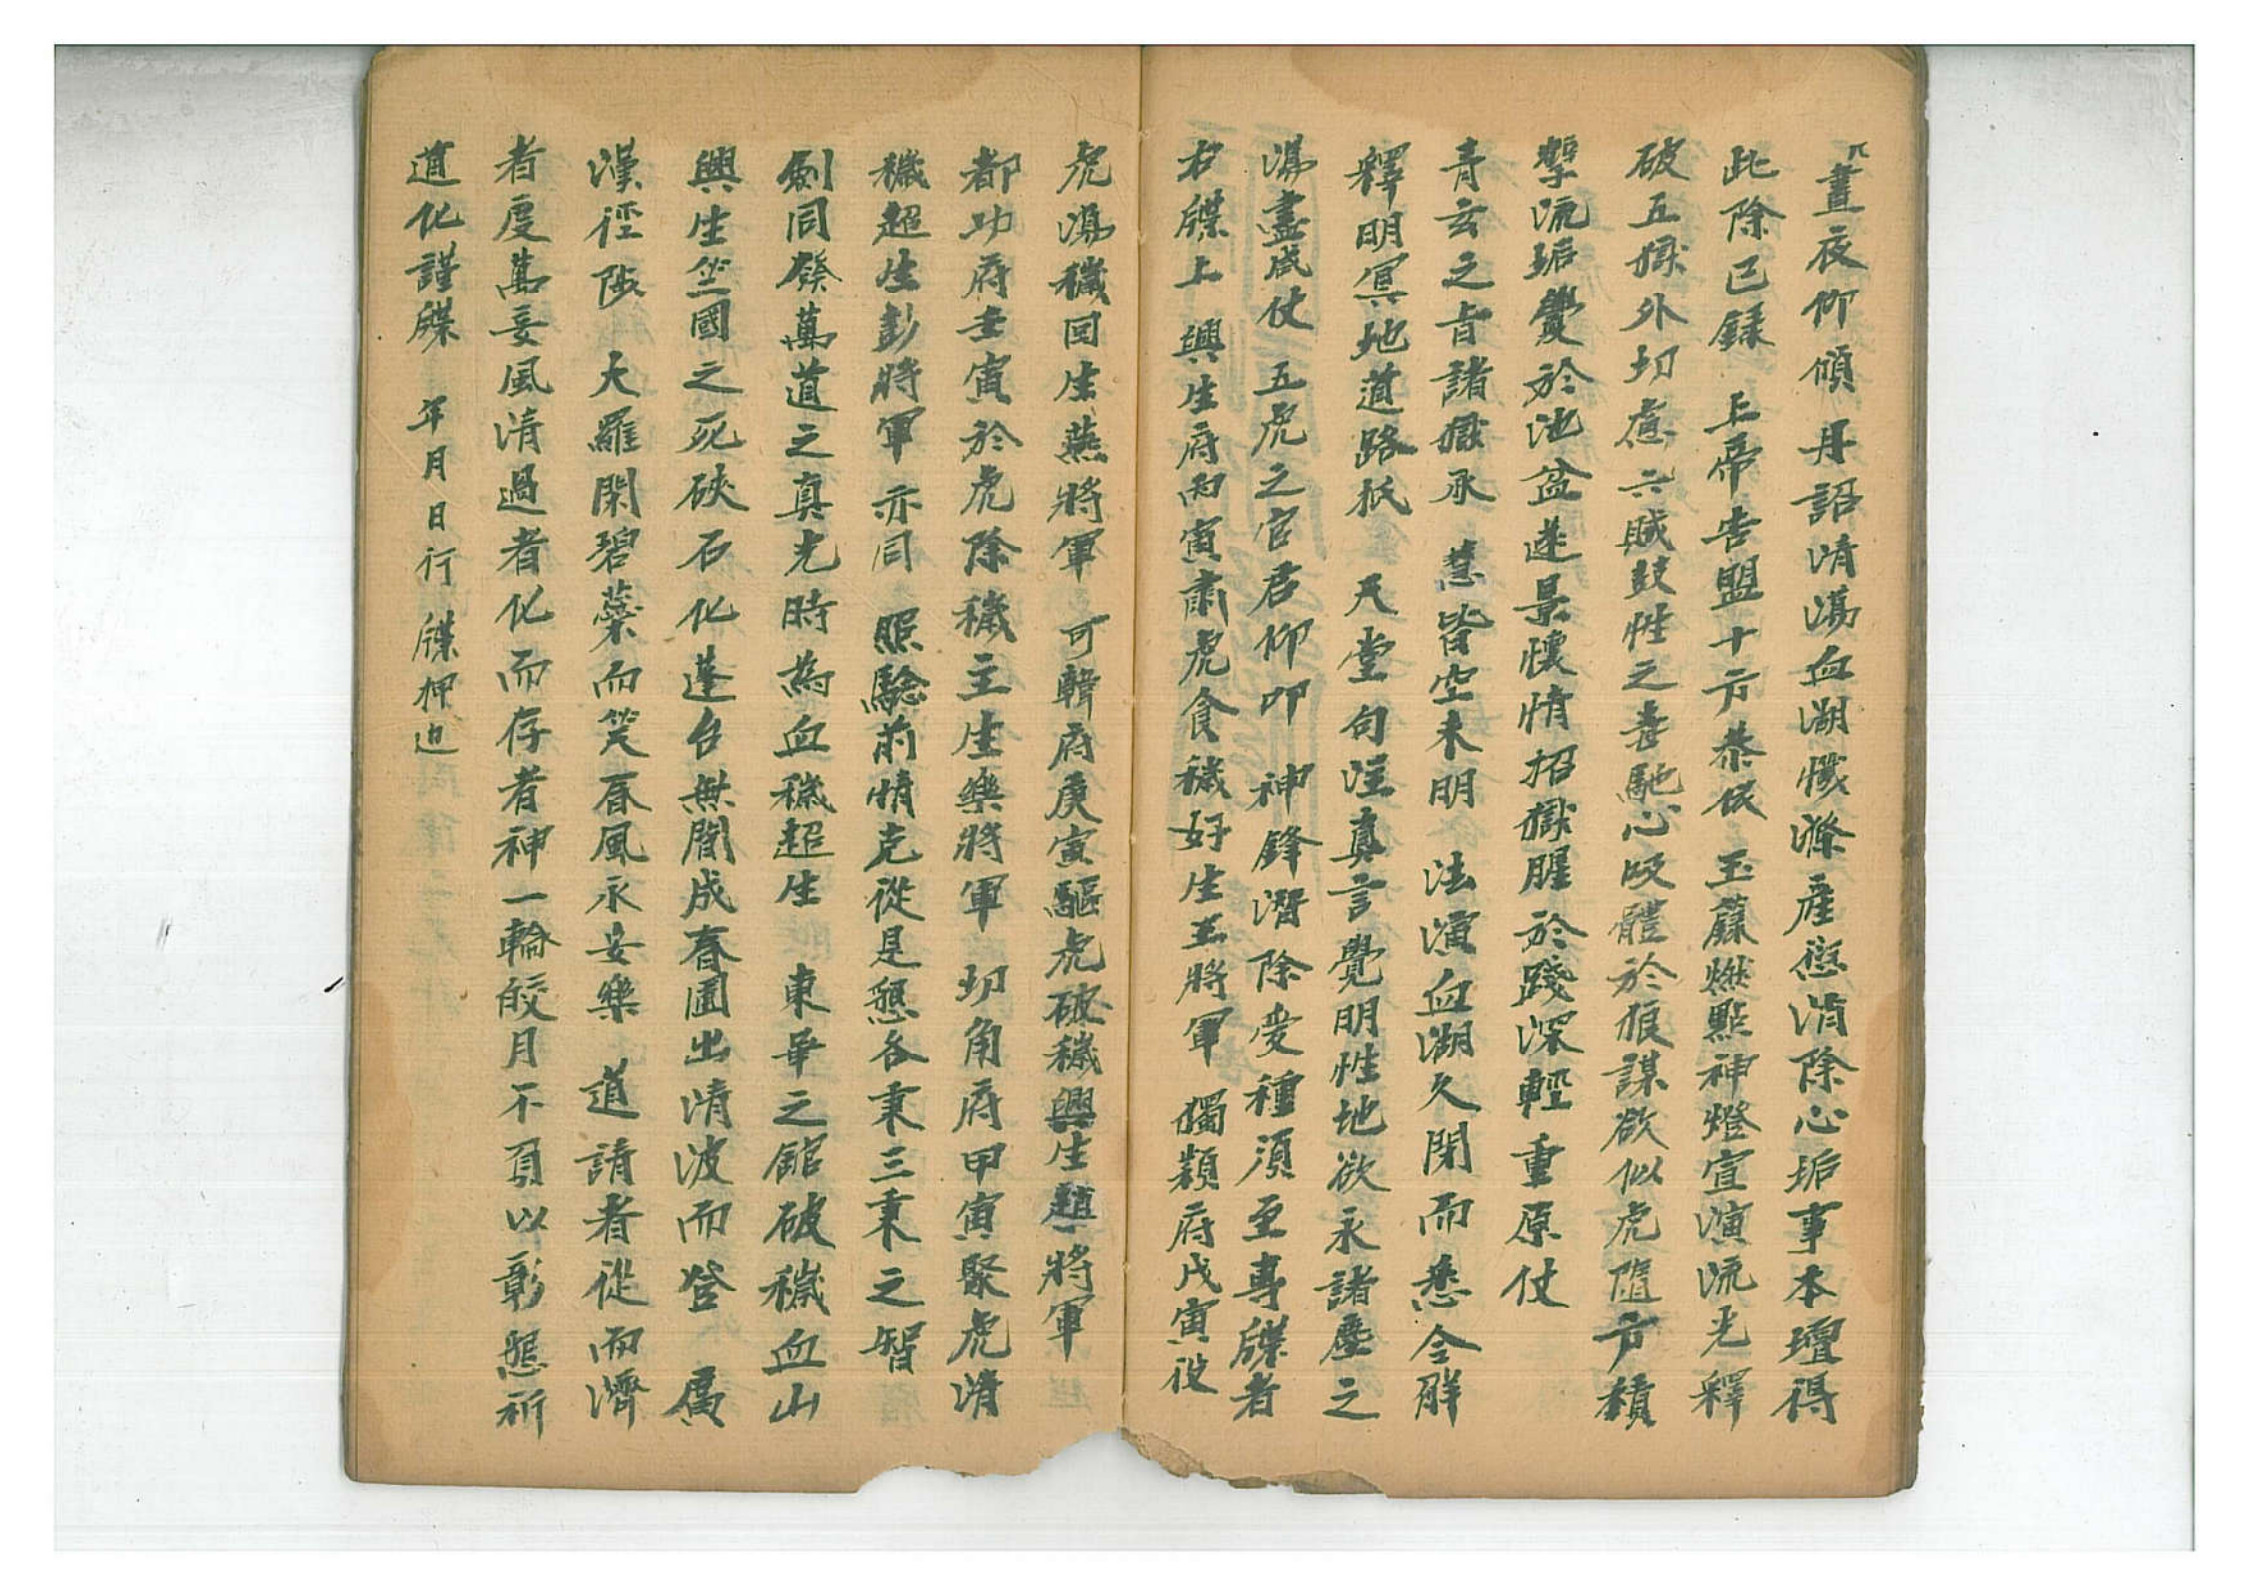 晝夜仰傾丹詔清蕩血湖懺滌產愆消除心垢事本壇得
此除已錄 上帝告盟十方恭依 玉蘂燃點神燈宣演流光釋
破五嶽外切慮六賊鼓性之喪馳心殴體於狼謀欲似虎隨方積
孽流垢釁於池盆迷景懷情招嶽腥於踐深輕重原仗
青玄之旨諸獄承 慧皆空未明 法演血湖久閉而悉令解
釋明冥地道路祇 天堂句注真言覺明性地欲永諸塵之
蕩盡咸仗 五虎之官君仰叩 神鋒潛除受種須至專牒者
右牒上 興生府丙寅肅虎食穢好生王將軍 獨顙府戊寅役
虎蕩穢回生燕將軍 可韓府庚寅驅虎破穢興生趙將軍
都功府壬寅於虎除穢主生樂將軍 切角府甲寅聚虎清
穢超生彭將軍亦同 照驗前情克從是懇各秉三秉之智
劍同發萬道之真光時為血穢超生 東華之館破穢血山
興生竺國之死硤石化蓬台無間成春圃出清波而登 廣
漢徑陟 大羅閬碧蘂而笑春風永安樂 道請者從而濟
者度萬妄風清過者化而存者神一輪皎月不負以彰懇祈
道化謹牒 年月日行 牒押迫